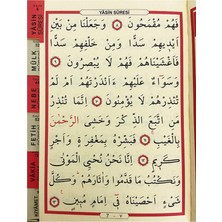 YÂSÎN SÛRESİ
فَهُمْ مُقْمَحُونَ ۝ وَجَعَلْنَا مِنْ بَيْنِ
اَيْدِيهِمْ سَدًّا وَمِنْ خَلْفِهِمْ سَدًّا
فَاَغْشَيْنَاهُمْ فَهُمْ لَا يُبْصِرُونَ ۝
وَسَوَٓاءٌ عَلَيْهِمْ ءَاَنْذَرْتَهُمْ اَمْ لَمْ
تُنْذِرْهُمْ لَا يُؤْمِنُونَ ۝ اِنَّمَا تُنْذِرُ
مَنِ اتَّبَعَ الذِّكْرَ وَخَشِيَ الرَّحْمٰنَ
بِالْغَيْبِ فَبَشِّرْهُ بِمَغْفِرَةٍ وَاَجْرٍ
كَرِيمٍ ۝ اِنَّا نَحْنُ نُحْيِي الْمَوْتٰى
وَنَكْتُبُ مَا قَدَّمُوا وَاٰثَارَهُمْ وَكُلَّ
شَيْءٍ اَحْصَيْنَاهُ فِٓي اِمَامٍ مُبِينٍ ۝
YÂSÎN SÛRESİ
MÜLK
NEBE
FETİH
VÂKIA
KIYÂMET